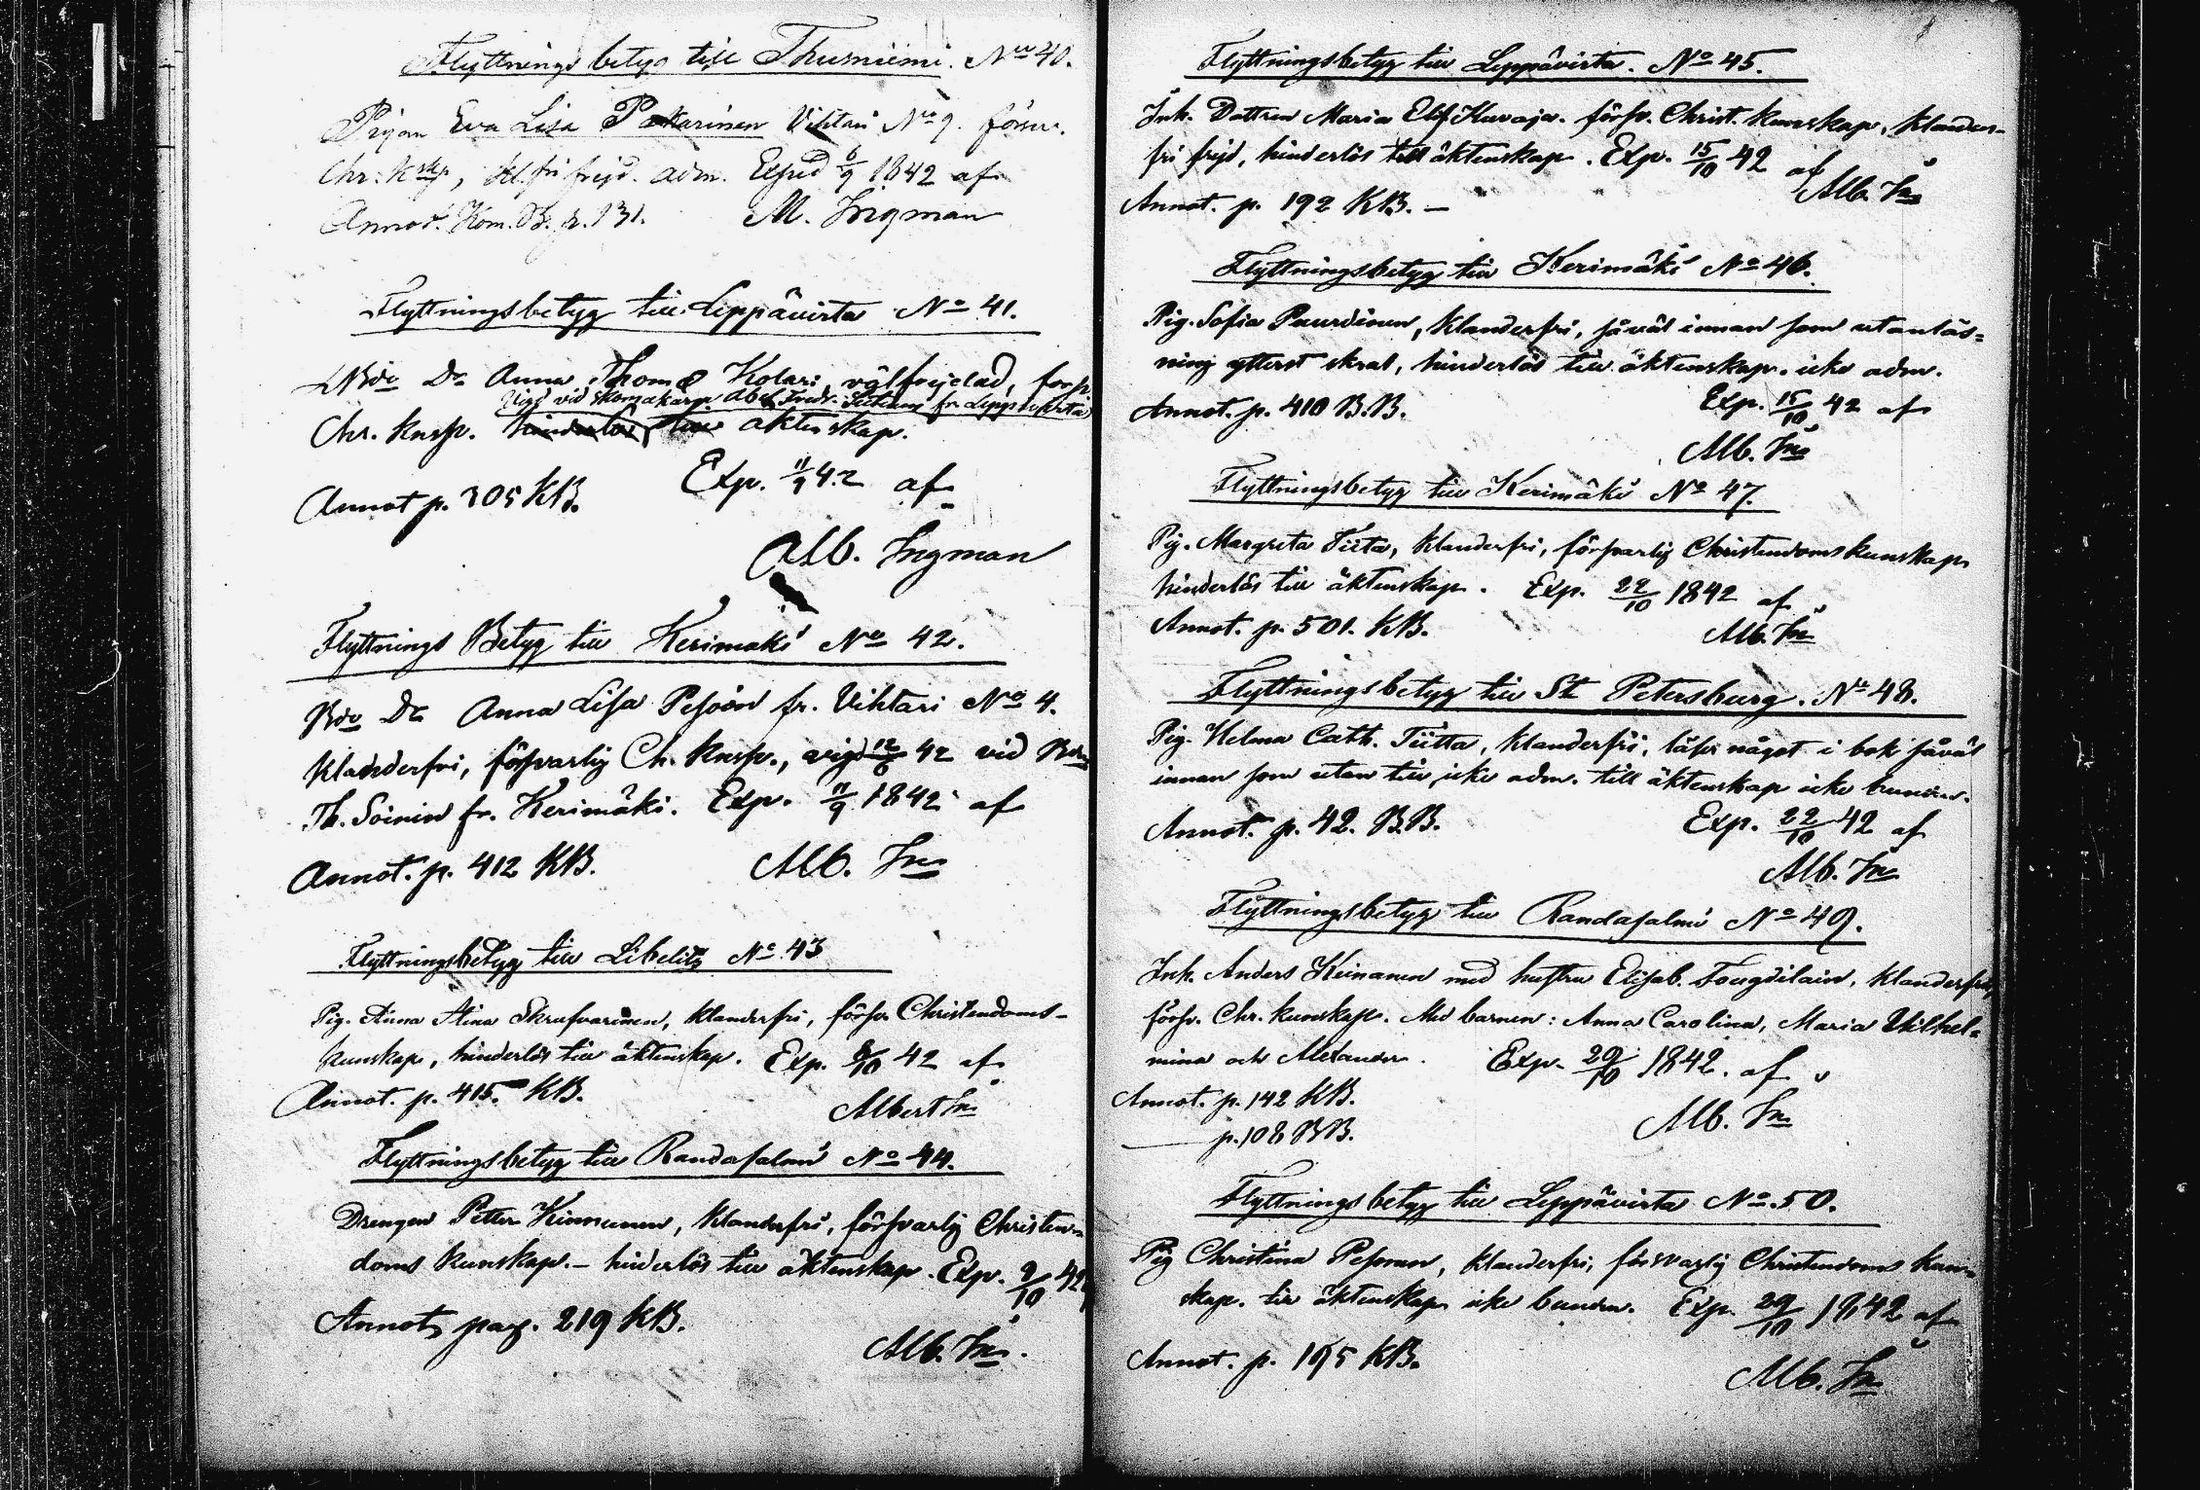 Flyttnings betyg till Thusniemi. No 40.
Pigan Eva Lisa Pakarinen Vihtari No 9. försv.
Chr: Kskp, kl.fri frejd. adm. Exped 6/9 1842 af
Annot. Kom. B. p. 131. M. Ingman
Flyttningsbetyg till Leppävirta No 41.
Bde Dr Anna Thom Kolari, välfrejdad, försv.
Vigd vid skomakaren Abel Fredr. fr. Leppävirta
Chr. knsp. hinderlös till äktenskap.
Annot p. 305 KB. Exp. 11/9 42 af
Alb. Ingman
Flyttnings Betyg till Kerimäki No 42.
Bde Dr Anna Lisa Pesoin fr. Vihtari No 4.
klanderfri, försvarlig Ch. knsp., vigd 12/6 42 vid Bden
Th. Soinin fr. Kerimäki. Exp. 11/9 1842 af
Annot. p. 412 KB. Alb. Inn
Flyttningsbetyg till Libelits No 43
Pig. Anna Stina Skrufvarinen, klanderfri, försv. Christendoms-
kunskap, hinderlös till äktenskap. Exp. 8/10 42 af
Annot. p. 415. KB. Albert Inn
Flyttningsbetyg till Randasalmi No 44.
Drengen Petter Kinnunen, klanderfri, försvarlig Christen-
doms kunskap. – hinderlös till äktenskap. Exp. 9/10 42
Annot. pag. 219 KB.
Alb. Inn.
Flyttningsbetyg till Leppävirta. No 45.
Inh. Dottren Maria Elis. Kuvaja. försv. Christ. kunskap, klander-
fri frejd, hinderlös till äktenskap. Exp. 15/10 42 af
Annot. p. 192 KB. – Alb. Inn
Flyttningsbetyg till Kerimäki No 46.
Pig. Sofia Puurdinen, klanderfri, såväl innan som utanläs-
ning ytterst skral, hinderlös till äktenskap. icke adm.
Annot. p. 410 B.B. Exp. 15/10 42 af
Alb. Inn
Flyttningsbetyg till Kerimäki No 47.
Pig. Margreta Tiitta, klanderfri, försvarlig Christendoms kunskap
hinderlös till äktenskap. Exp. 22/10 1842 af
Annot. p. 501. KB. Alb. Inn
Flyttningsbetyg till St Petersburg. No 48.
Pig. Helena Cath. Tiitta, klanderfri, läser något i bok såväl
innan som utan till, icke adm. till äktenskap icke bunden.
Annot. p. 42. BB. Exp. 22/10 42 af
Alb. Inn
Flyttningsbetyg till Randasalmi No 49.
Inh. Anders Keinanen med hustru Elisab. Tougdilain, klanderfri,
försv. Chr. kunskap. Med barnen: Anna Carolina, Maria Vilhel-
mina och Alexander. Exp. 29/10 1842. af
Annot. p. 142 KB.
p. 108 BB. Alb. Inn
Flyttningsbetyg till Leppävirta No. 50.
Pig Christina Pesonen, klanderfri, försvarlig Christendoms kun-
skap. till äktenskap icke bunden. Exp. 29/10 1842 af
Annot. p. 195 KB.
Alb. Inn